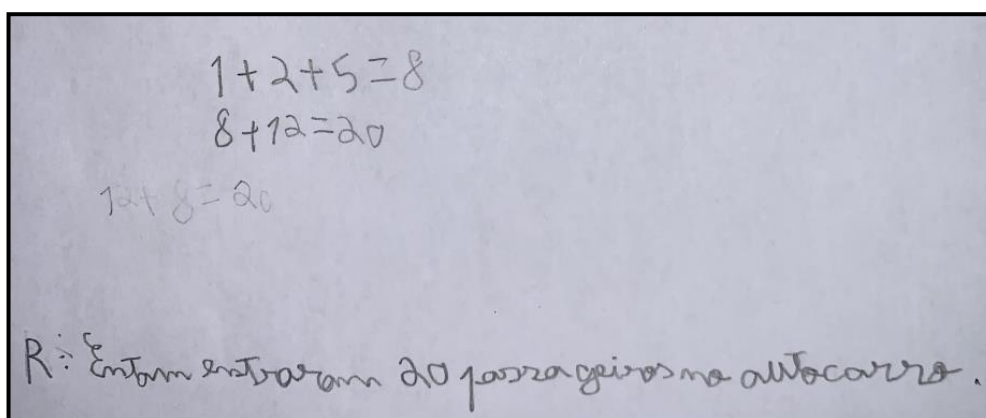 1+2+5=8
8+12=20
12+8=20
R: Entam entraram 20 passageiros no autocarro.